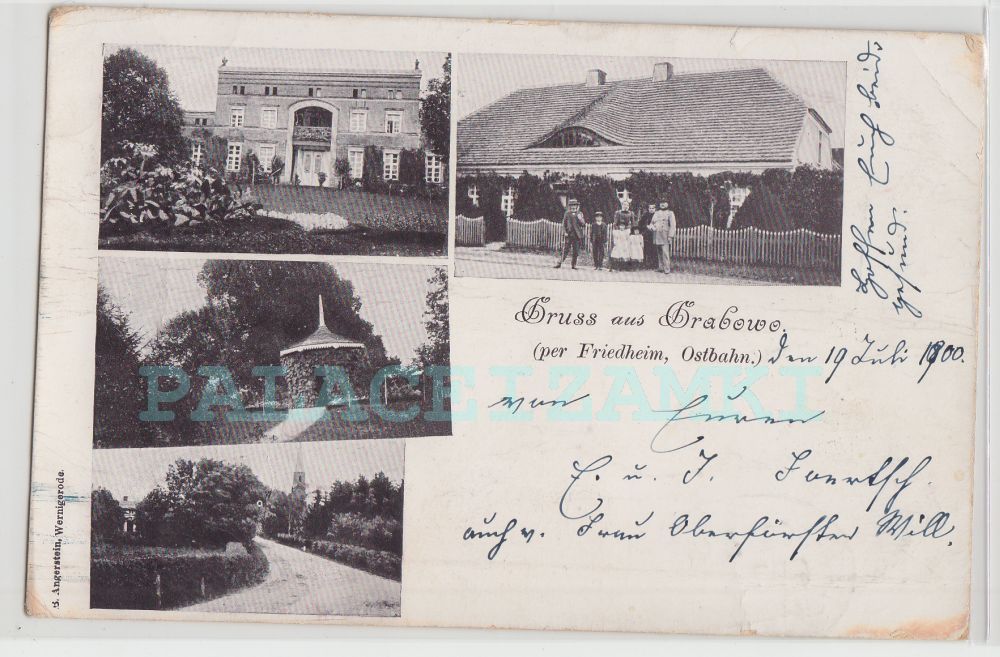 Gruss aus Grabowo.
(per Friedheim, Ostbahn.) den 19 Juli 1900.
von Euren
E. u. J. Foertsch.
auch v. Frau Oberförster Will.
Hoffen Euch beide
gesund.
PALACEIZAMKI
B. Angerstein, Wernigerode.